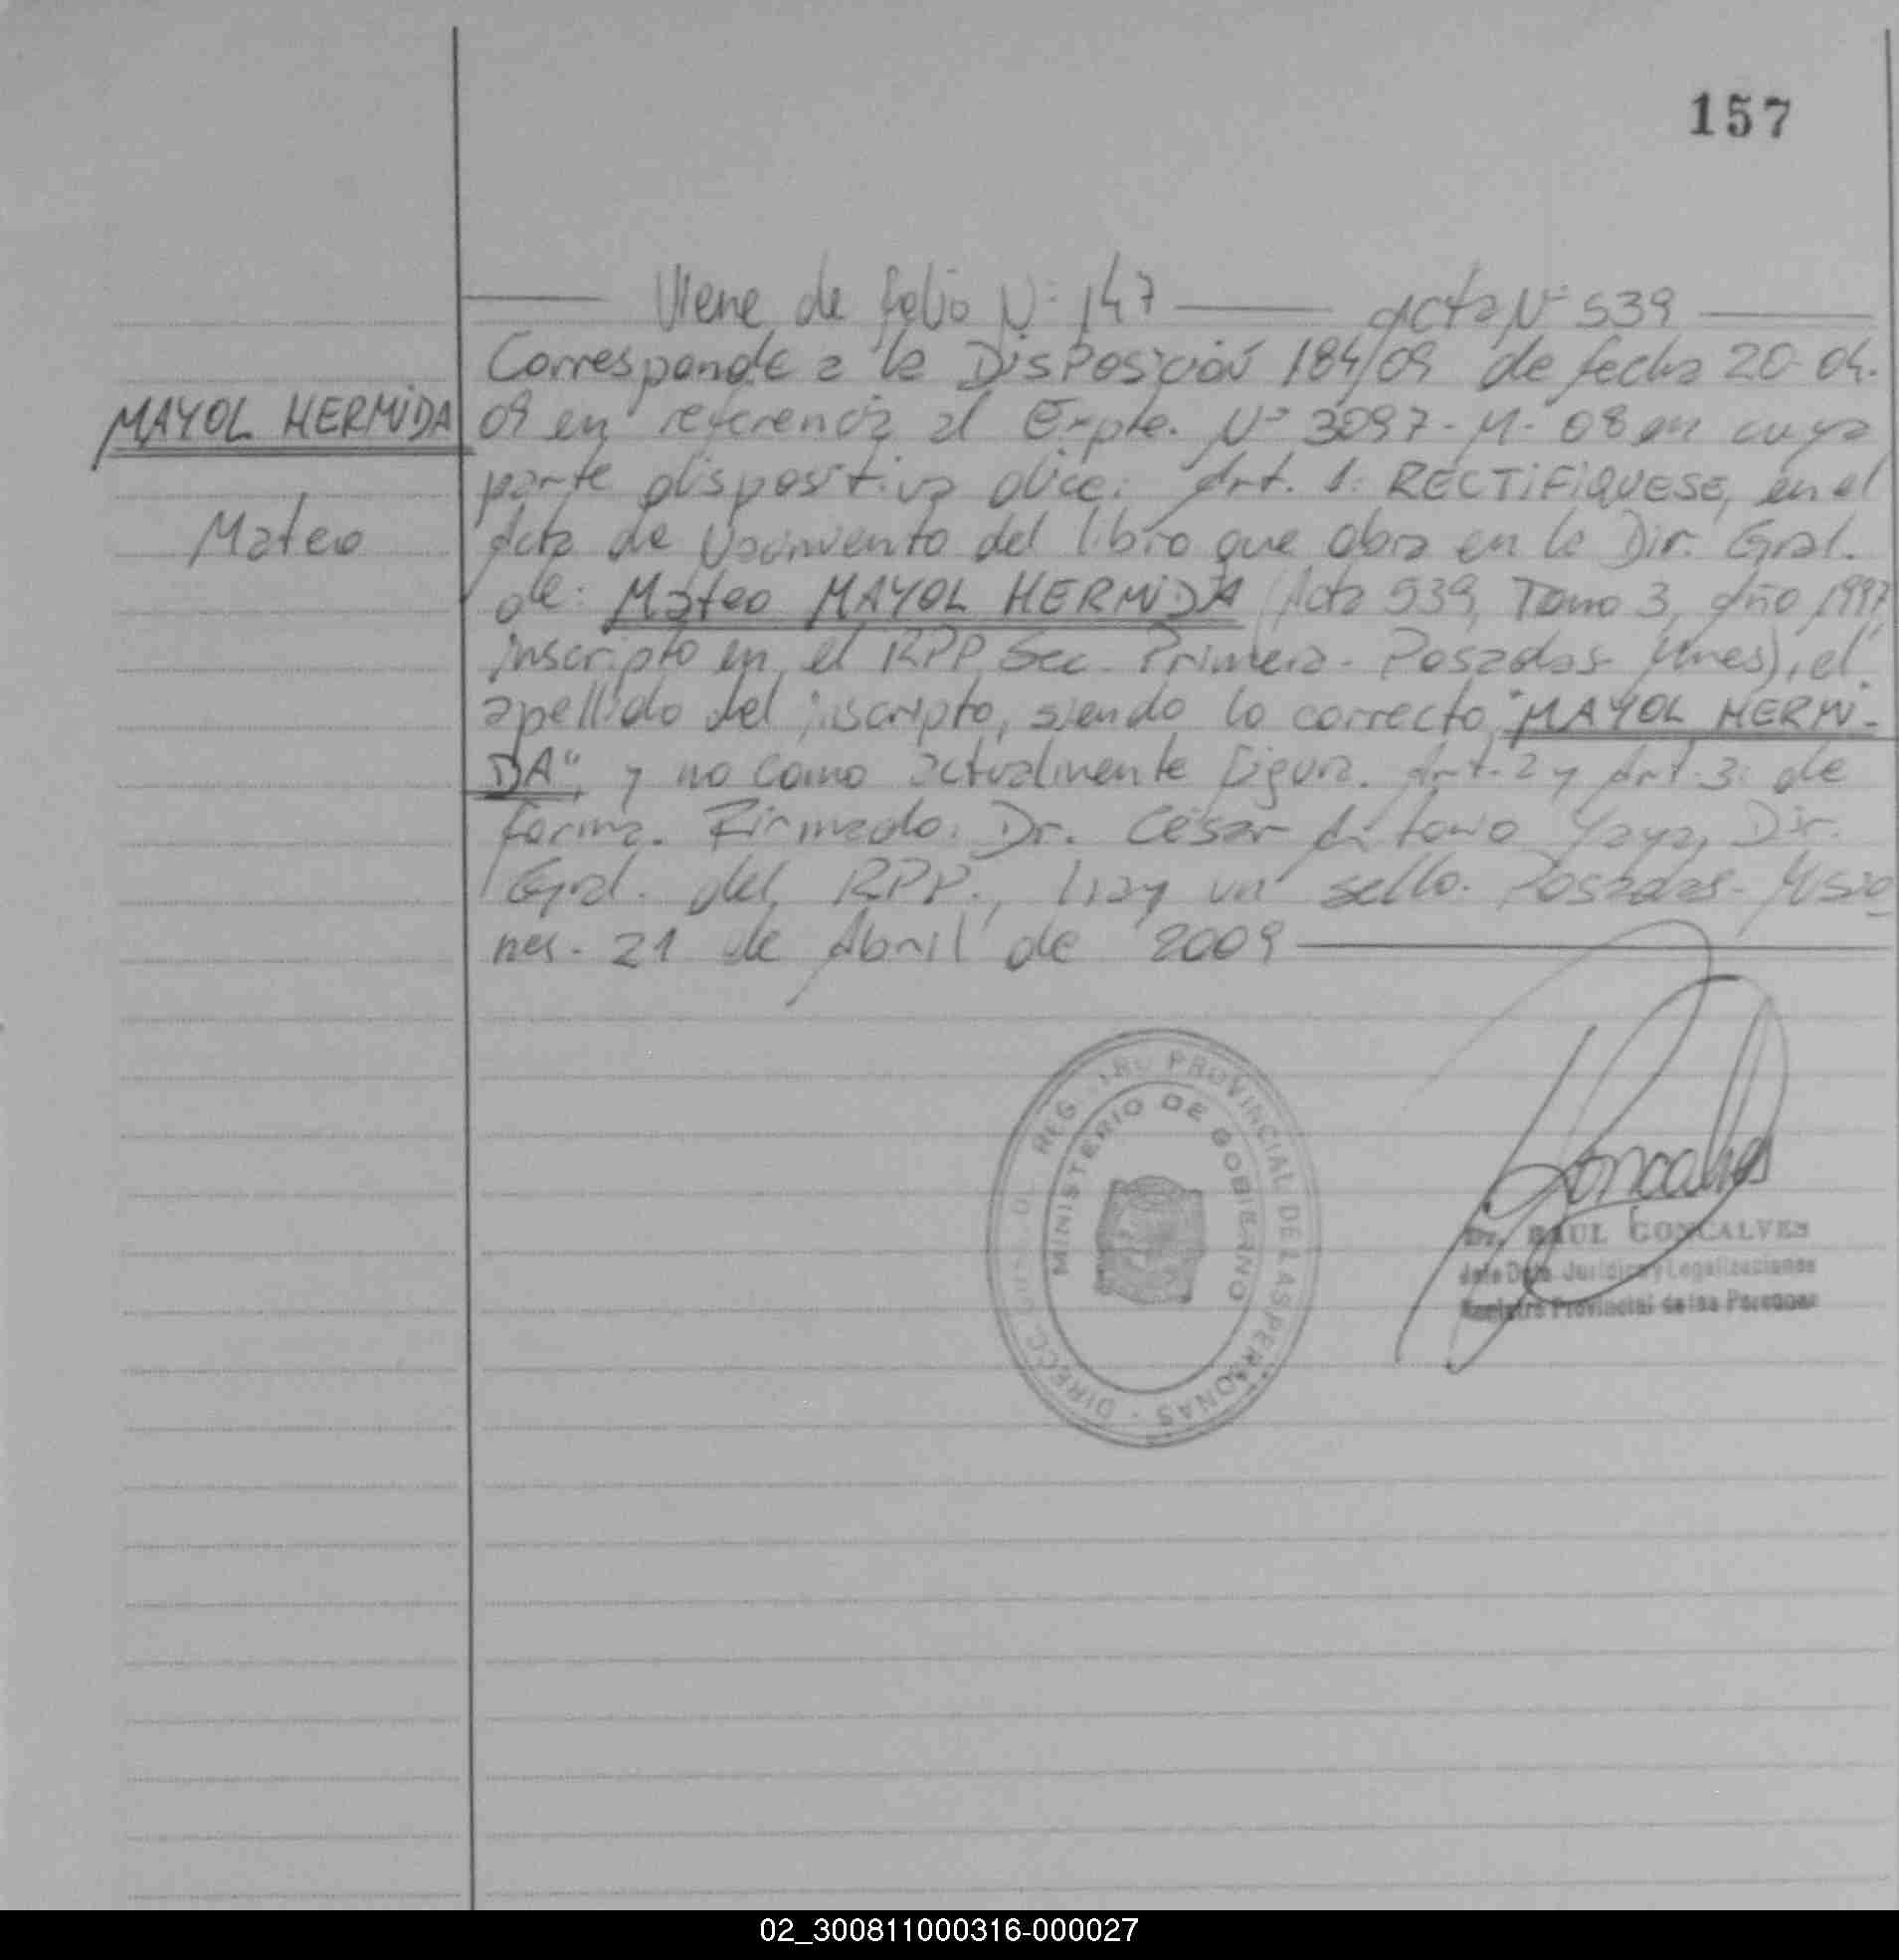 157
Viene de folio Nº 147 acta Nº 539
Corresponde a la Disposición 184/09 de fecha 20-04-
MAYOL HERMIDA
09 en referencia al Expte. Nº 3097-M-08 en cuya
parte dispositiva dice: Art. 1: RECTIFIQUESE, en el
Mateo
Acta de Nacimiento del libro que obra en la Dir. Gral.
de: Mateo MAYOL HERMIDA (Acta 539, Tomo 3, año 1997
inscripto en el RPP, Sec. Primera - Posadas Mnes), el
apellido del inscripto, siendo lo correcto "MAYOL HERMI-
DA" y no como actualmente figura. Art. 2 y Art. 3: de
forma. Firmado: Dr. César Antonio Yaya, Dir.
Gral. del RPP., hay un sello. Posadas - Misio
nes - 21 de Abril de 2009
DIRECC. GRAL. DEL REGISTRO PROVINCIAL DE LAS PERSONAS
MINISTERIO DE GOBIERNO
Goncalves
Dr. RAUL GONCALVES
Jefe Dpto. Juridico y Legalizaciones
Registro Provincial de las Personas
02_300811000316-000027